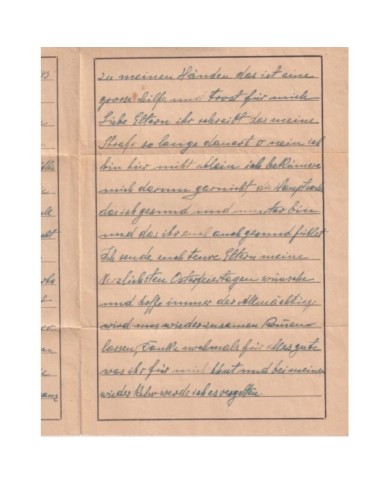 zu meinen Händen das ist eine
grosse hilfe und trost für mich
Liebe Eltern ihr schreibt das meine
Strafe so lange dauert o nein ich
bin hier nicht allein ich bekümere
mich darum garnicht die Hauptsache
das ich gesund und munter bin
und das ihr euch auch gesund fühlt
Ich sende euch teure Eltern meine
Herzlichsten Osterfeiertagen wünsche
und hoffe immer der Allmächtige
wird uns wieder zusamen
lassen, Danke nochmals für alles gute
was ihr für mich thut und bei meiner
wieder Kehr werde ich es vergelten